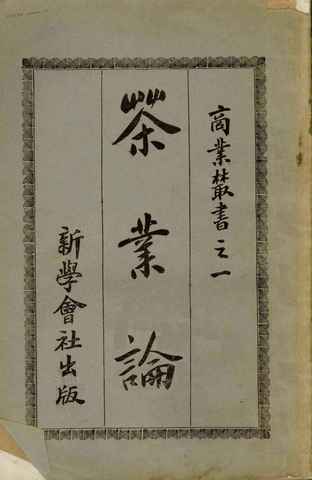 商業叢書之一
茶業論
新學會社出版